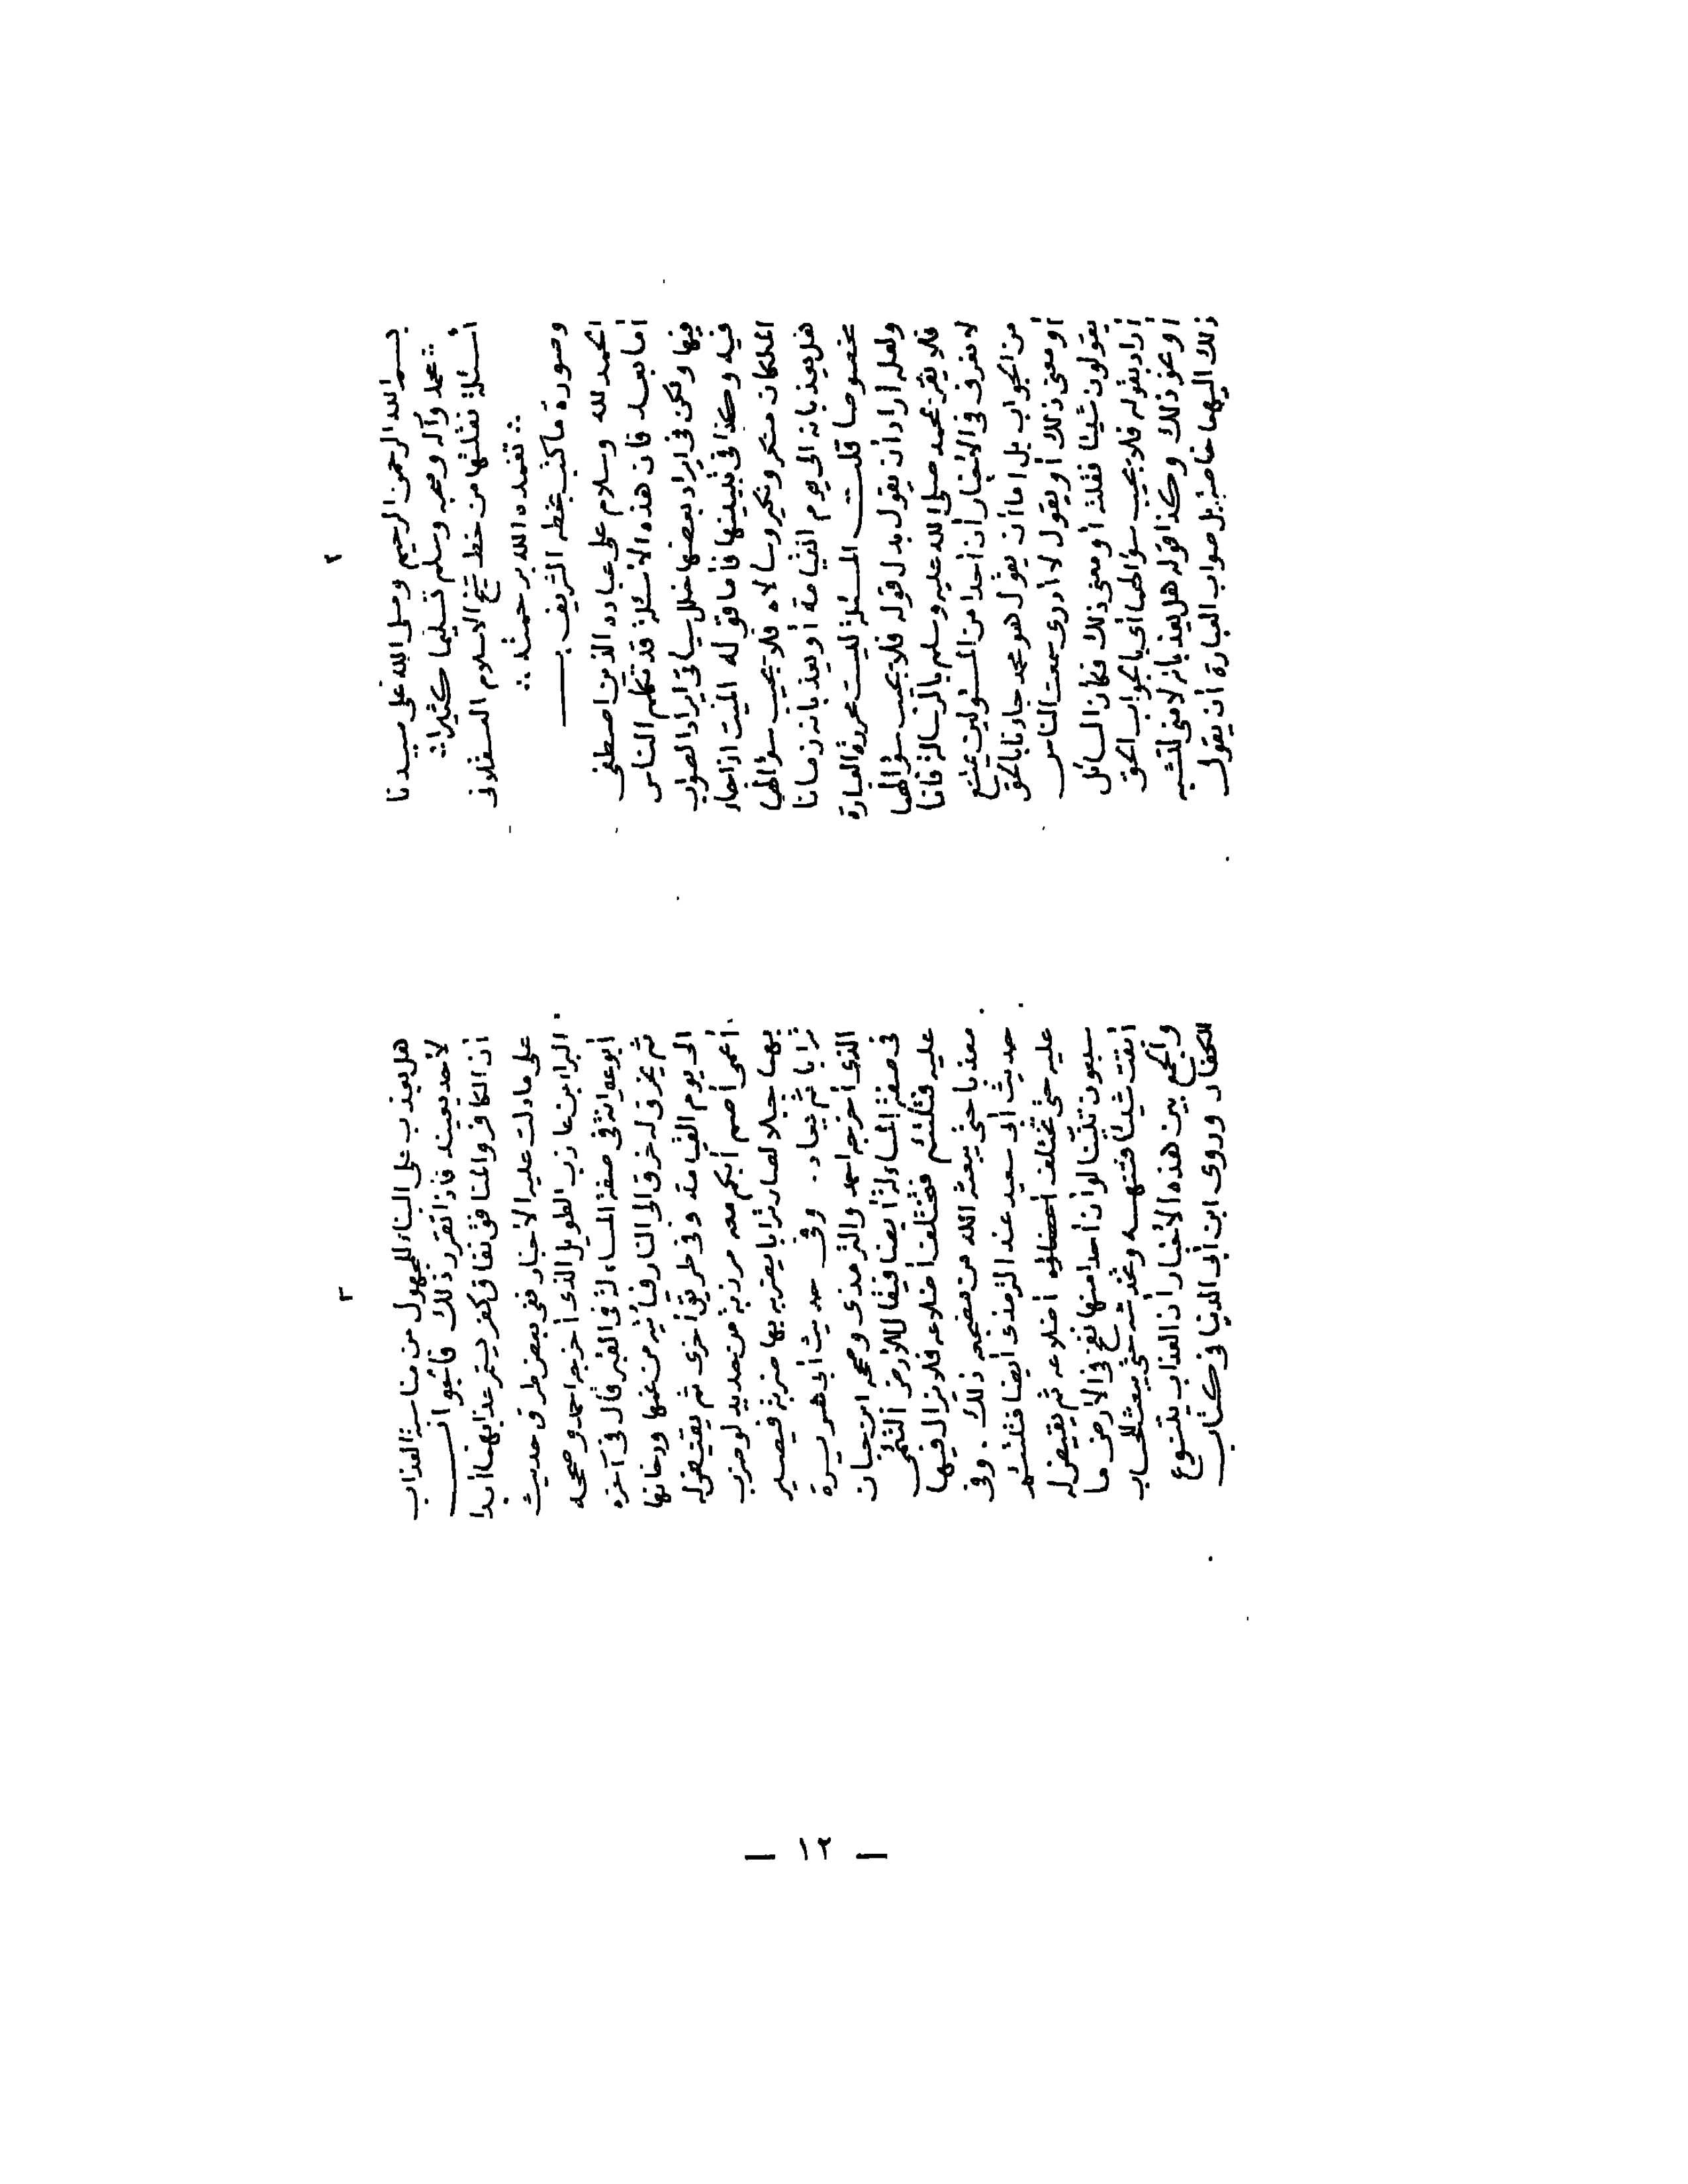 ٢
بسم الله الرحمن الرحيم وصلى الله على سيدنا
محمد وآله وصحبه وسلم تسليما كثيرا
أسئلة نقلتها من خط شيخ الاسلام العسقلانى
تغمده الله برحمته
وصورة ما كتب بخطه الشريف
الحمد لله وسلام على عباده الذين اصطفى
أما بعد فان هذه الأسئلة قد تكلم الناس
فيها ولكن فى ايراد بعضها خلل سيأتى ايراد الصواب
فيه وكذا فى تبيينها فأما قوله الميت اذا جاء
الملكان منكر ونكير وسالاه فلا يجيب سؤالهما
هل يعذبانه الى يوم القيامة أو يعذبانه زمانا
مخصوصا قلت المسئلة ليست محررة العبارة
ولعله أراد أن يقول بدل قوله فلا يجيب سؤالهما
فلا يقر بمحمد صلى الله عليه وسلم بالرسالة فانا
لا نعرف فى الأخبار أن أحدا من المسئولين يمتنع
من الجواب بل اما أن يقول هو محمد جاءنا بالحق
أو معنى ذلك أو يقول لا أدرى سمعت الناس
يقولون شيئا فقلته أو معنى ذلك فكان السائل
أراد بقوله فلا يجيب سؤالهما أى بالجواب الحق
أو نحو ذلك وكذا قوله هل يعذبانه لا معنى لنسبة
ذلك اليهما خاصة بل صواب العبارة أن يقول
٣
هل يعذب على البناء للمجهول من مناسبة العذاب
لأحد بعينه فاذا تقرر ذلك فالجواب
ان الكافر والمنافق نفاق كفر يستمر عذابهما أبدا
على ما دلت عليه الأخبار ففى بعض طرق حديث
البراء بن عازب الطويل الذى أخرجه احمد وصححه
أبو عوانة فى صفة المساءلة فى القبر قال فى آخره
ثم يخرق له خرق الى النار فيأتيه من غمها ودخانها
الى يوم القيامة وفى طريق أخرى ثم يقيض له
أعمى أصم أبكم معه مرزبة من حديد لو ضرب
بها جبلا لصار ترابا يضربه بها ضربة فيصير
ترابا ثم يعاد . وفى حديث أبى هريرة
الذى أخرجه احمد والترمذى وصححه ابن حبان
فى صفة المساءلة أيضا فيقال للأرض التئمى
عليه فتلتئم فتختلف أضلاعه فلا يزال فيها
معذبا حتى يبعثه الله من مضجعه ذلك . وفى
حديث أبى سعيد عند الترمذى أيضا فتلتئم
عليه حتى تختلف أضلاعه ثم يقيض له
سبعون تنينا لو أن أحدا منها نفخ فى الأرض ما
أبقت شيئا فتنهسه وتخدشه حتى يبعث للحساب
والجمع بين هذه الأخبار أن العذاب يتنوع
للكفار وروى ابن أبى الدنيا فى كتاب
— ١٢ —